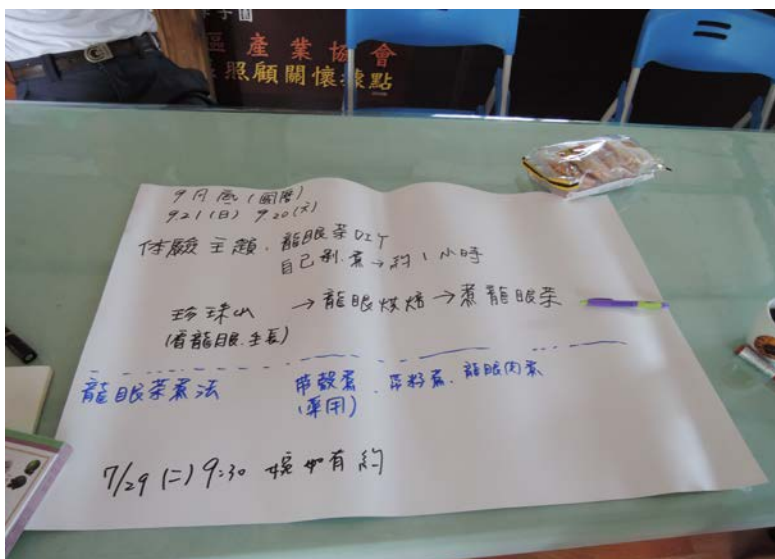 學園
區產業協會
照顧關懷據點
9月底(國曆)
9.21(日) 9.20(六)
体驗主題. 龍眼茶DIY
自己剝.煮→約1小時
珍珠山 →龍眼烘焙→煮龍眼茶
(看龍眼.生長)
龍眼茶煮法 帶殼煮.帶籽煮.龍眼肉煮
(藥用)
7/29(二)9:30 婉如有約